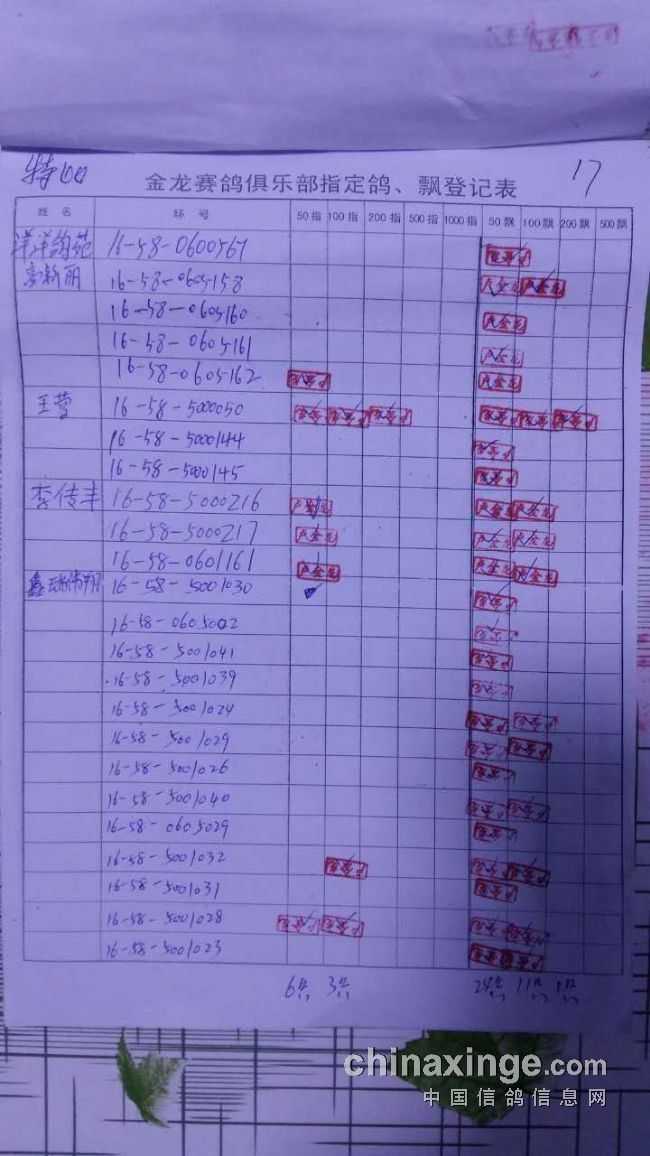 特如 17
金龙赛鸽俱乐部指定鸽、飘登记表
姓名 环号 50指 100指 200指 500指 1000指 50飘 100飘 200飘 500飘
洋洋鸽苑 16-58-0600567
丽 16-58-0605158
16-58-0605160
16-58-0605161
16-58-0605162
王莹 16-58-5000050
16-58-5000144
16-58-5000145
李传丰 16-58-5000216
16-58-5000217
16-58-0601161
鑫 翔 16-58-5001030
16-58-0605002
16-58-5001041
16-58-5001039
16-58-5001024
16-58-5001029
16-58-5001026
16-58-5001040
16-58-0605029
16-58-5001032
16-58-5001031
16-58-5001028
16-58-5001023
6只 3只 24只 11只 1只
chinaxinge.com
中国信鸽信息网